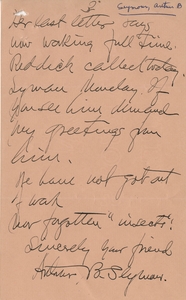 Her last letter says
now working full time.
Reddick called today.
Lyman Monday. If
you see him demand
my greetings from
him.
We have not got out
of
nor forgotten "insects".
Sincerely your friend
Arthur B.